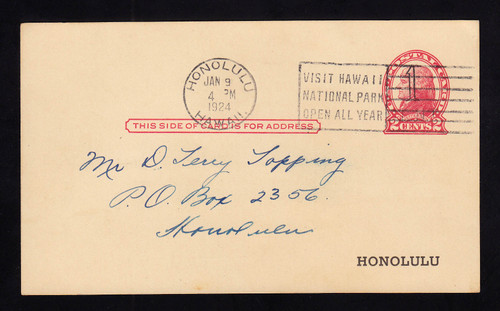 HONOLULU
JAN 9
4 PM
1924
HAWAII.
VISIT HAWAII
NATIONAL PARK
OPEN ALL YEAR
1
2 CENTS 2
THIS SIDE OF CARD IS FOR ADDRESS
Mr D. Terry Topping
P.O. Box 2356.
Honolulu
HONOLULU